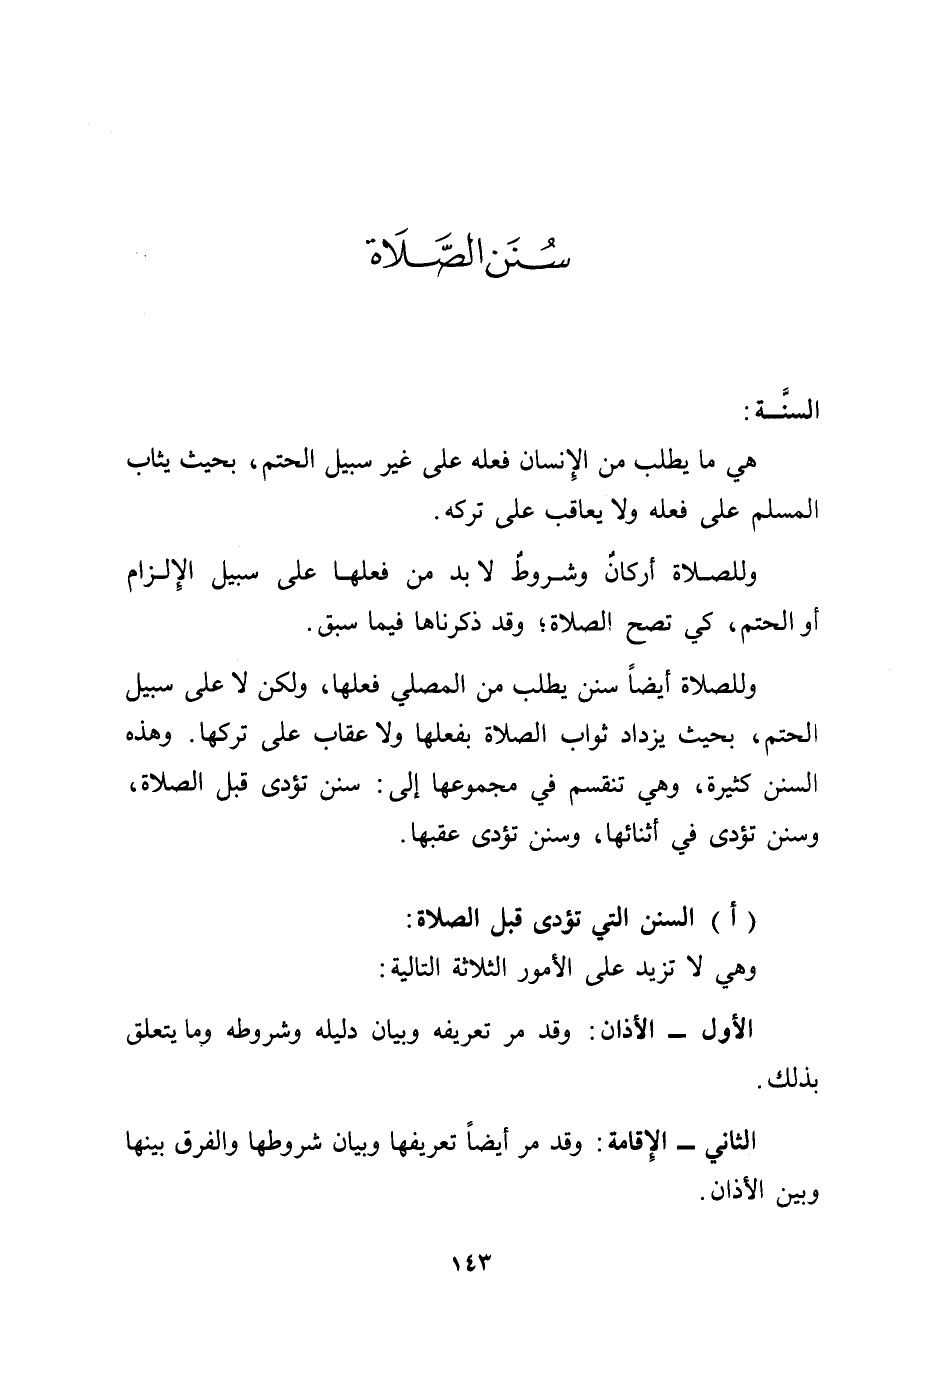 سُنَن الصَّلَاة
السنَّة :
هي ما يطلب من الإنسان فعله على غير سبيل الحتم، بحيث يثاب
المسلم على فعله ولا يعاقب على تركه.
وللصلاة أركانٌ وشروطٌ لا بد من فعلها على سبيل الإلزام
أو الحتم، كي تصح الصلاة؛ وقد ذكرناها فيما سبق.
وللصلاة أيضاً سنن يطلب من المصلي فعلها، ولكن لا على سبيل
الحتم، بحيث يزداد ثواب الصلاة بفعلها ولا عقاب على تركها. وهذه
السنن كثيرة، وهي تنقسم في مجموعها إلى: سنن تؤدى قبل الصلاة،
وسنن تؤدى في أثنائها، وسنن تؤدى عقبها.
( أ ) السنن التي تؤدى قبل الصلاة:
وهي لا تزيد على الأمور الثلاثة التالية:
الأول ــ الأذان: وقد مر تعريفه وبيان دليله وشروطه وما يتعلق
بذلك.
الثاني ــ الإقامة: وقد مر أيضاً تعريفها وبيان شروطها والفرق بينها
وبين الأذان.
١٤٣